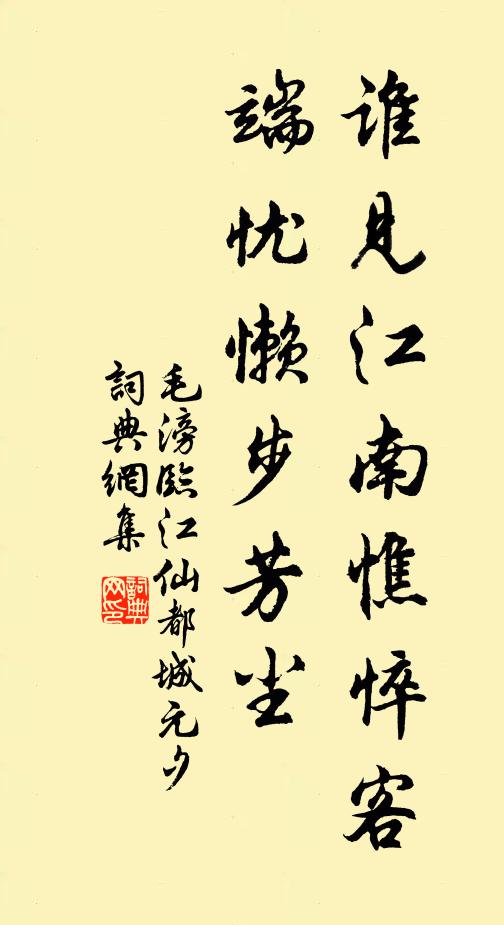 谁见江南憔悴客
端忧懒步芳尘
毛滂臨江仙都城元夕
詞典網集
詞典
网印